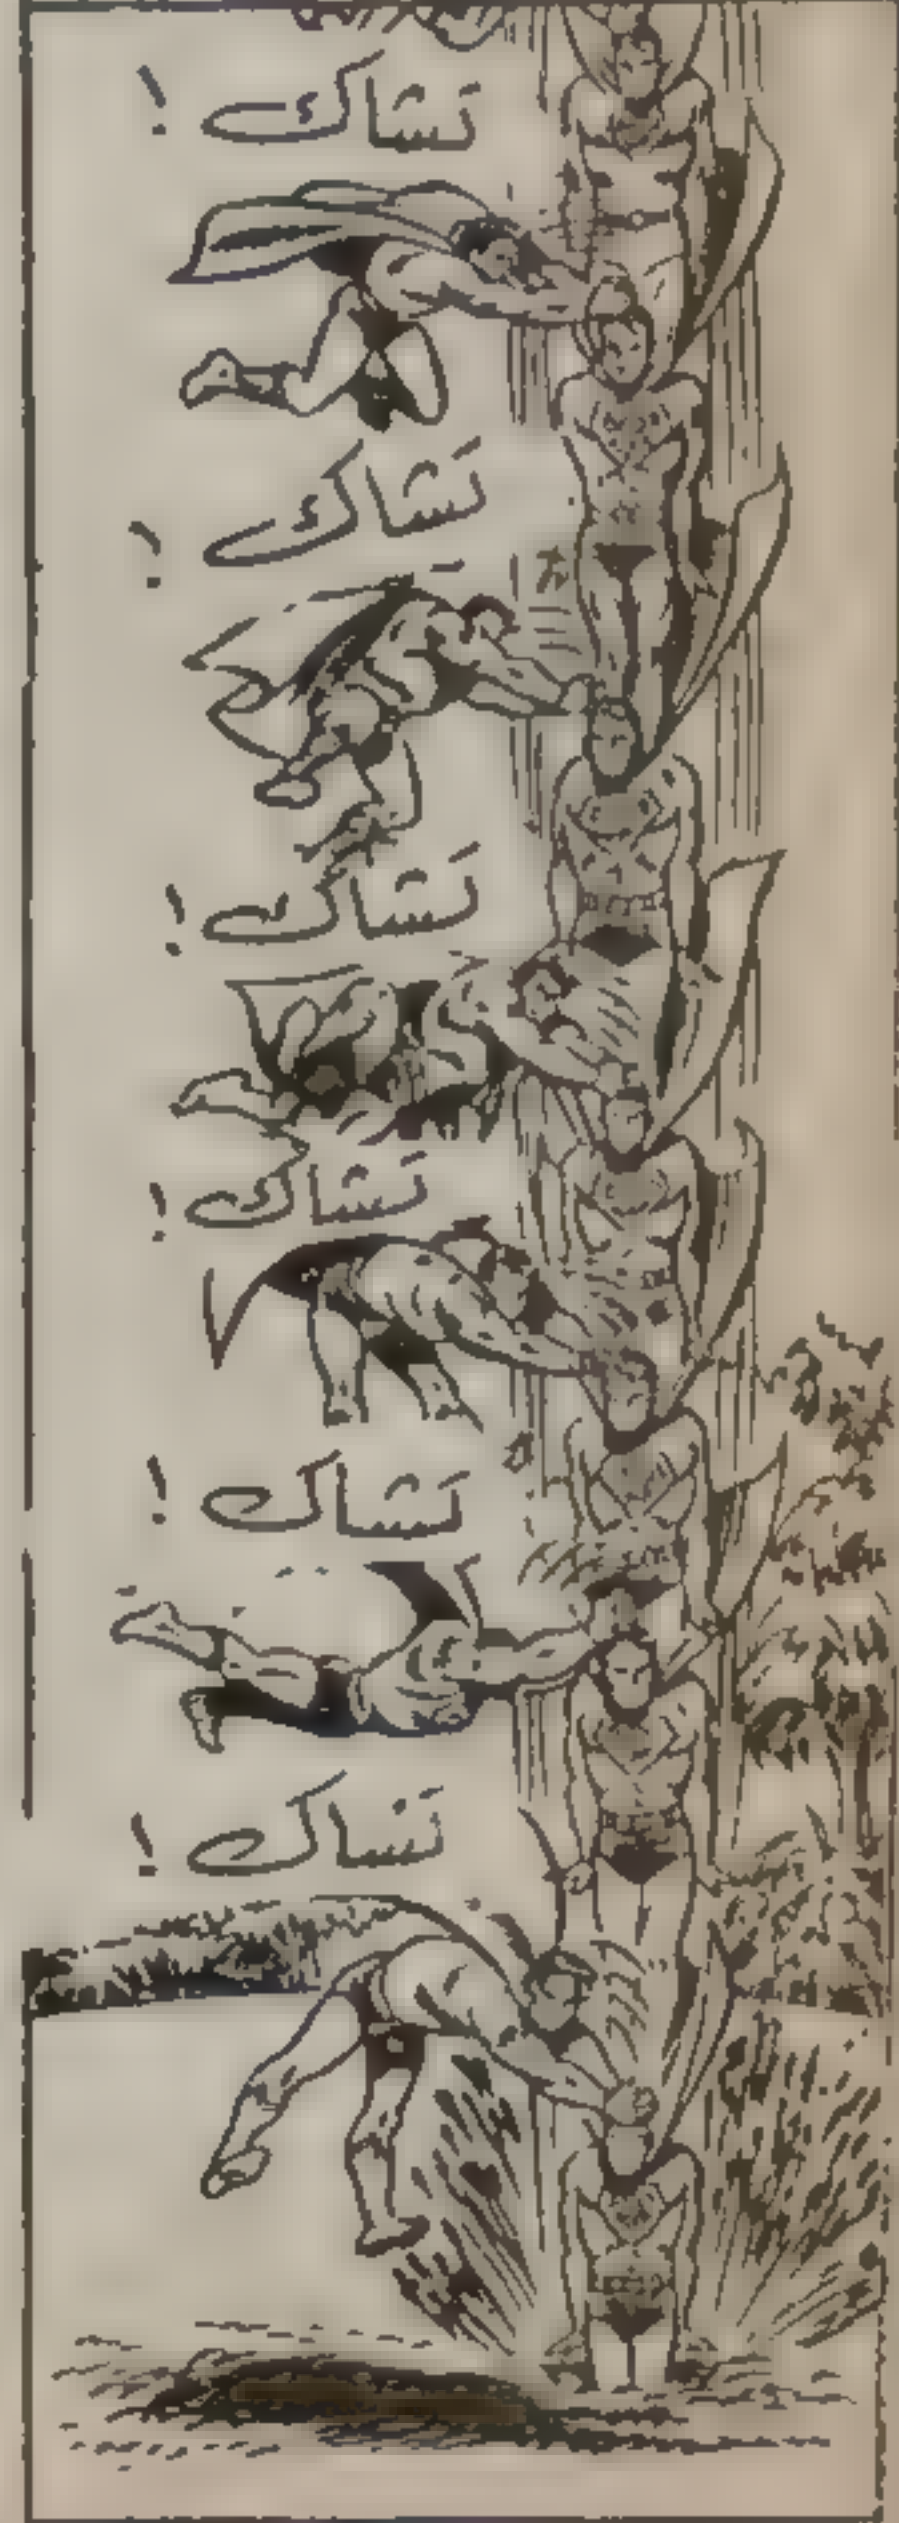 تشاك !
تشاك !
تشاك !
تشاك !
تشاك !
تشاك !